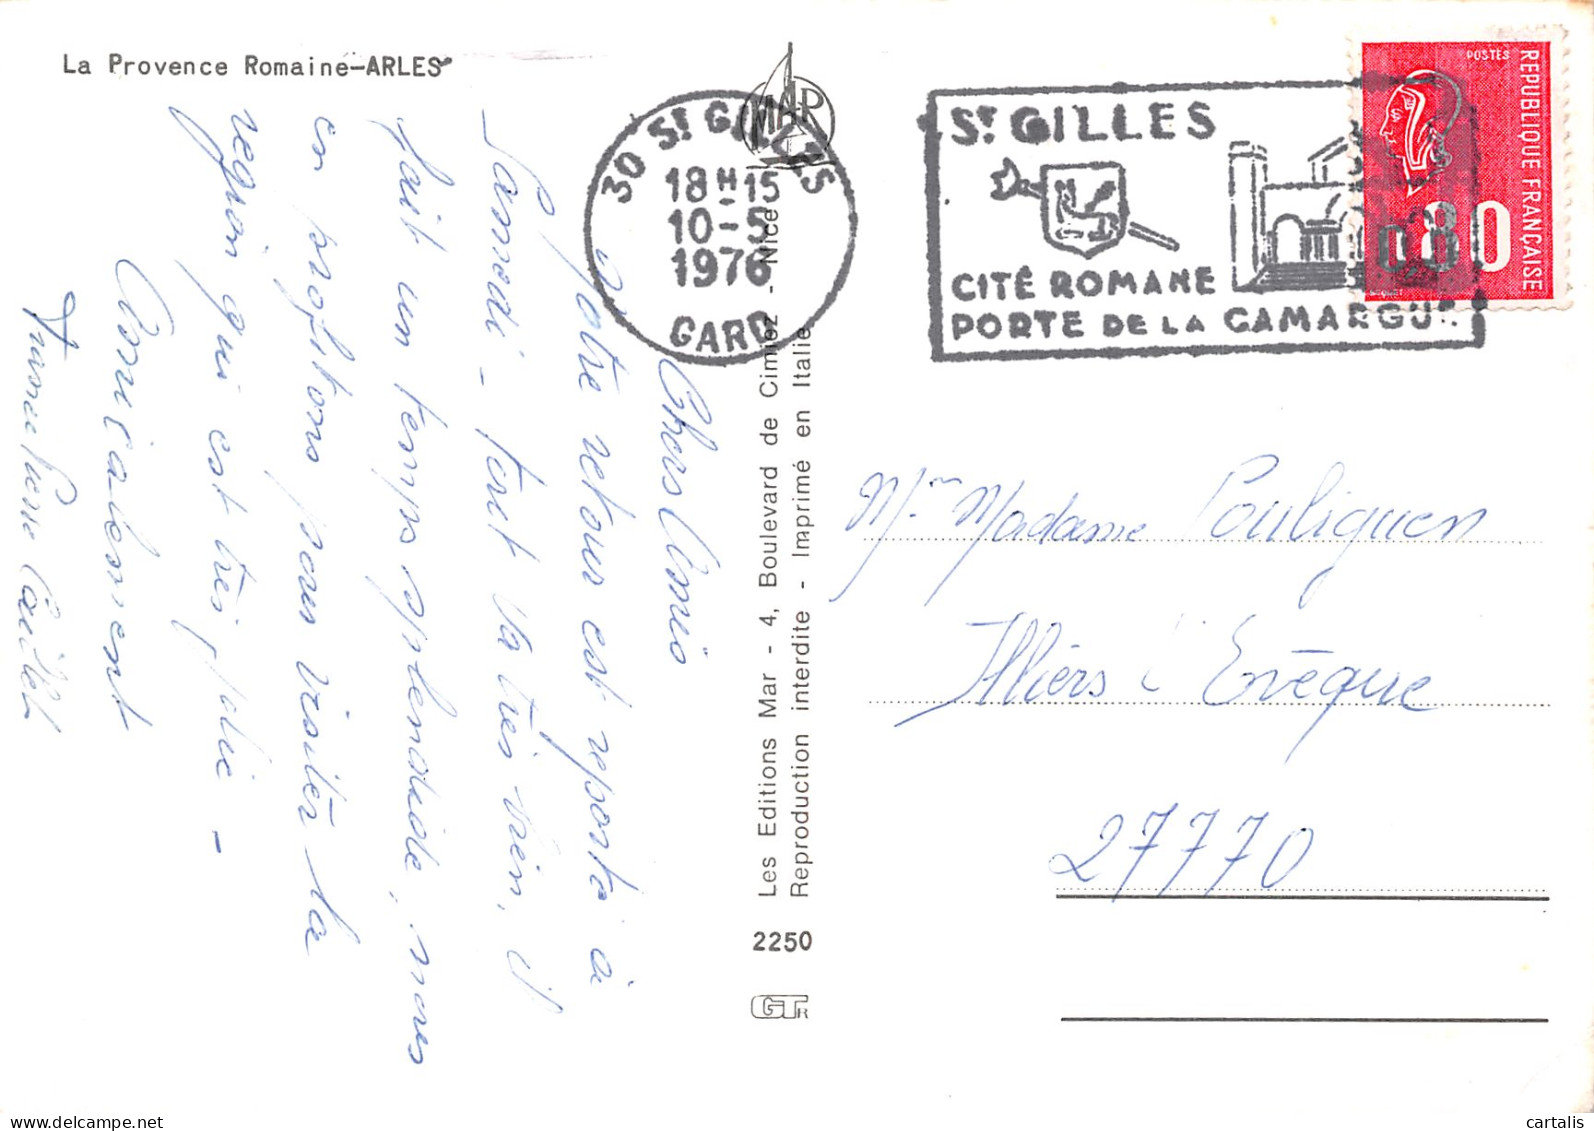 La Provence Romaine-ARLES
Chers Amis
Notre retour est reporté à
Samedi - tout va très bien, il
fait un temps splendide, nous
en profitons pour visiter la
region qui est très jolie -
Amicalement
30 ST GILLES
18H15
10-5
1976
GARD
MAR
ST GILLES
CITÉ ROMANE
PORTE DE LA CAMARGUE
POSTES
REPUBLIQUE FRANÇAISE
0.80
Mr Madame Pouliquen
Illiers l'Evèque
27770
Les Editions Mar - 4, Boulevard de Cimiez - Nice
Reproduction interdite - Imprimé en Italie
2250
GTR
www.delcampe.net
cartalis